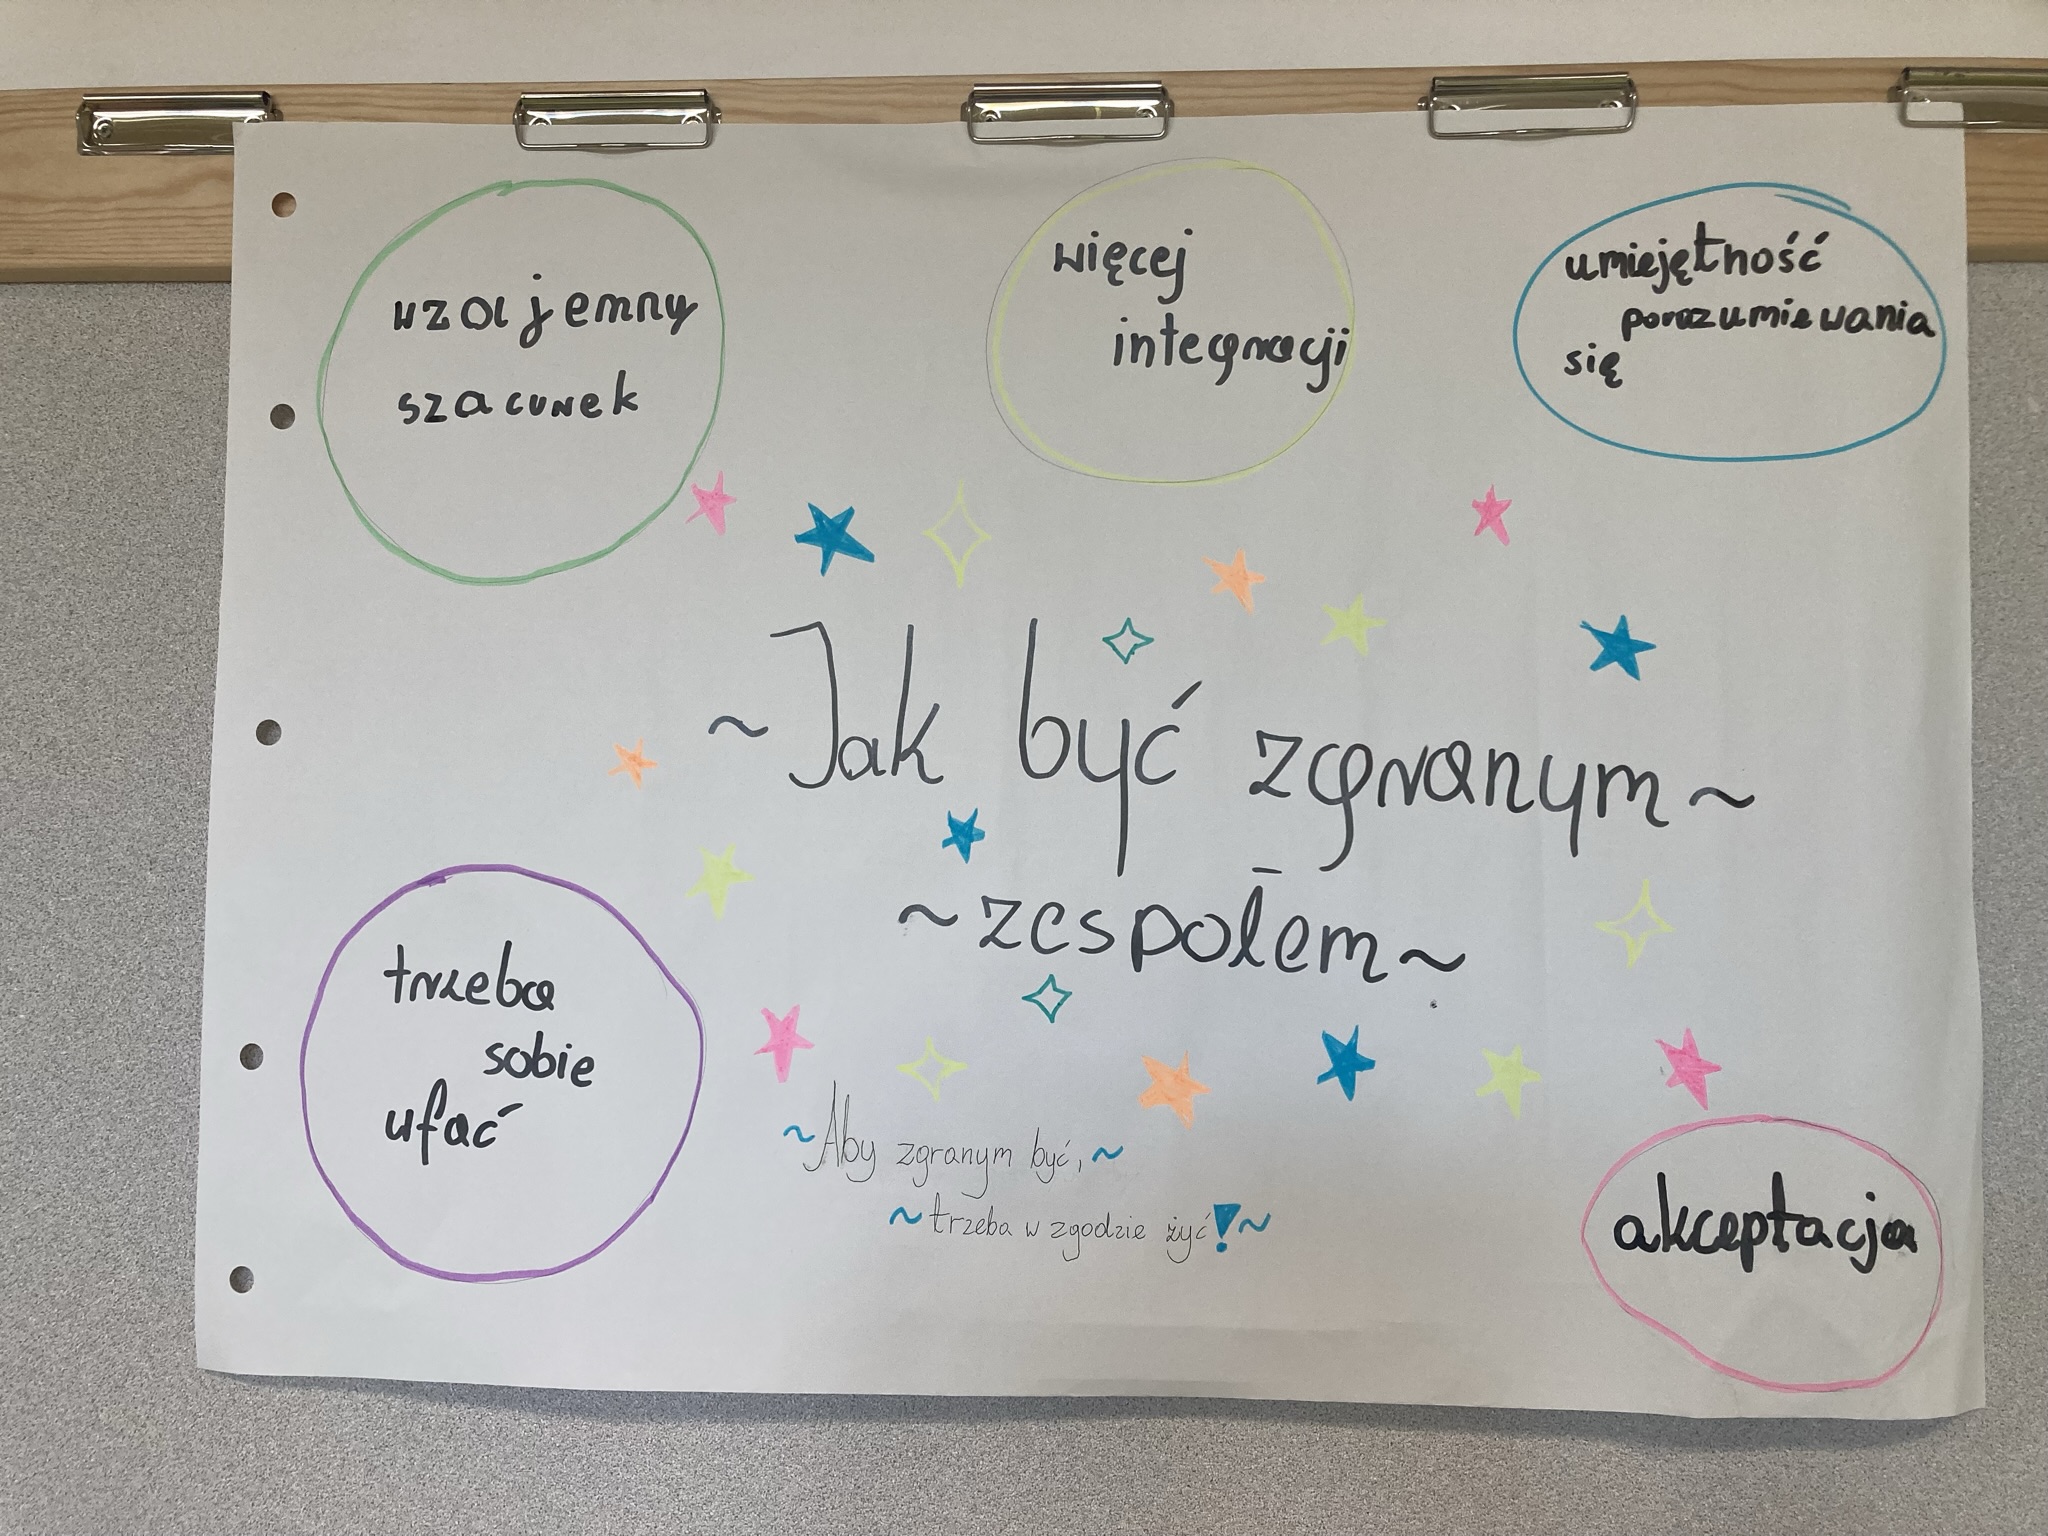 wzajemny
szacunek
więcej
integracji
umiejętność
porozumiewania
się
~Jak być zgranym~
~zespołem~
trzeba
sobie
ufać
~Aby zgranym być,~
~trzeba w zgodzie żyć!~
akceptacja